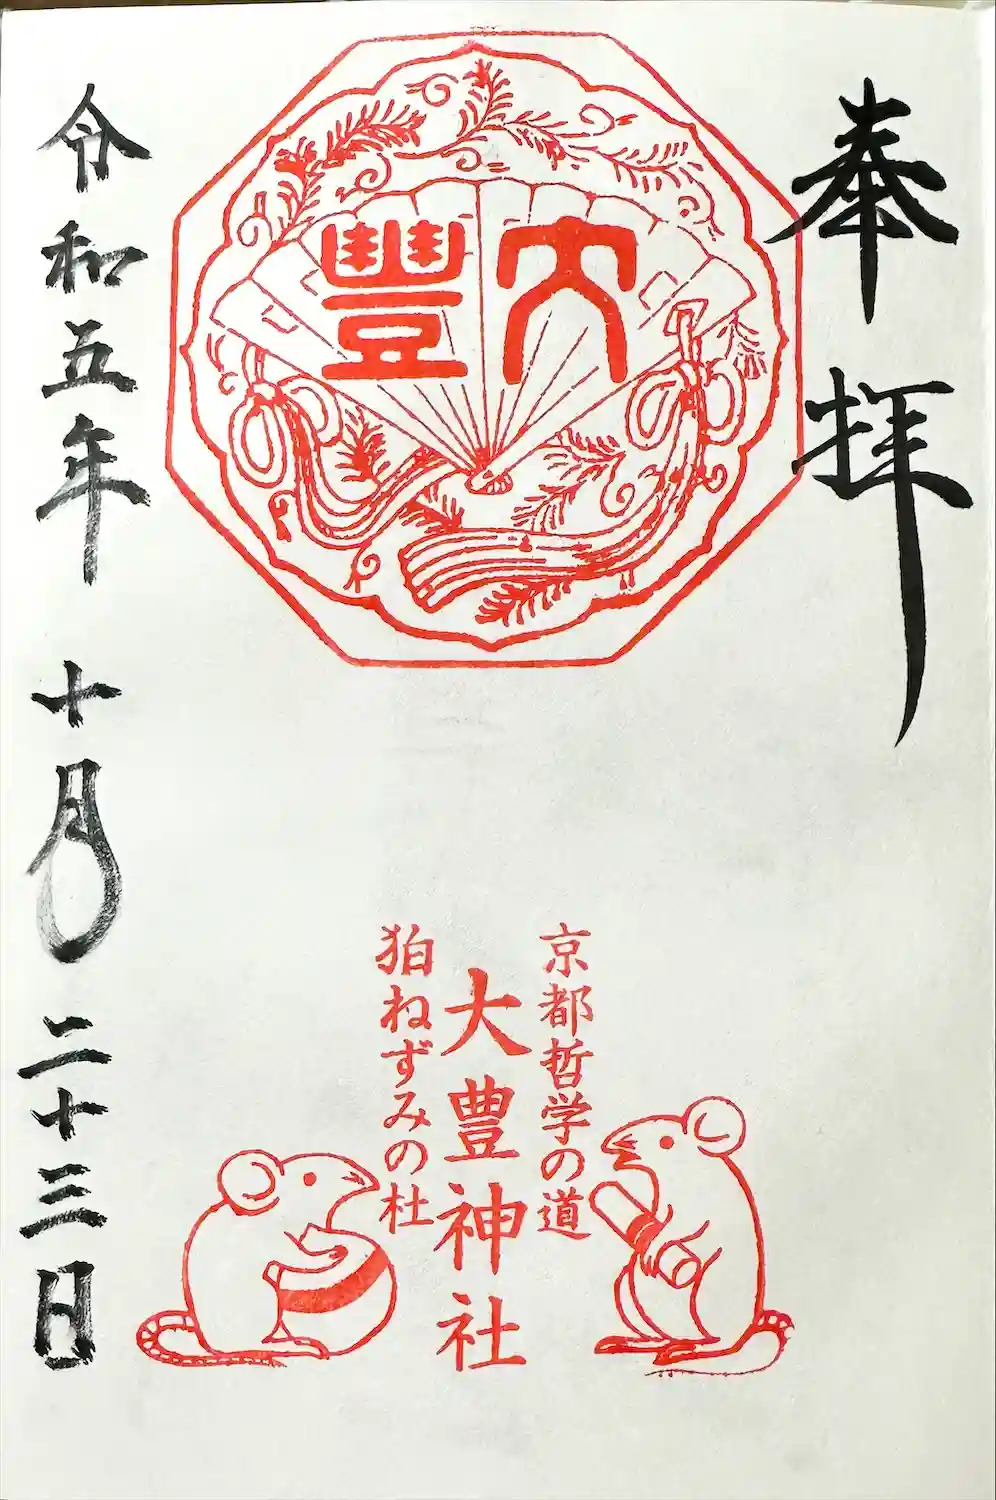 奉拝
大豐
京都哲学の道
大豊神社
狛ねずみの社
令和五年 十月 二十三日